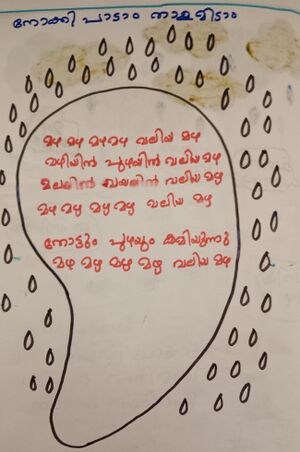 നോക്കി പാടാം നാമമിടാം
മഴ മഴ മഴമഴ വലിയ മഴ
വഴിയിൽ പുഴയിൽ വലിയമഴ
മലയിൽ വയലിൽ വലിയ മഴ
മഴ മഴ മഴ മഴ വലിയ മഴ
തോടും പുഴയും കവിയുന്നു
മഴ മഴ മഴ മഴ വലിയ മഴ